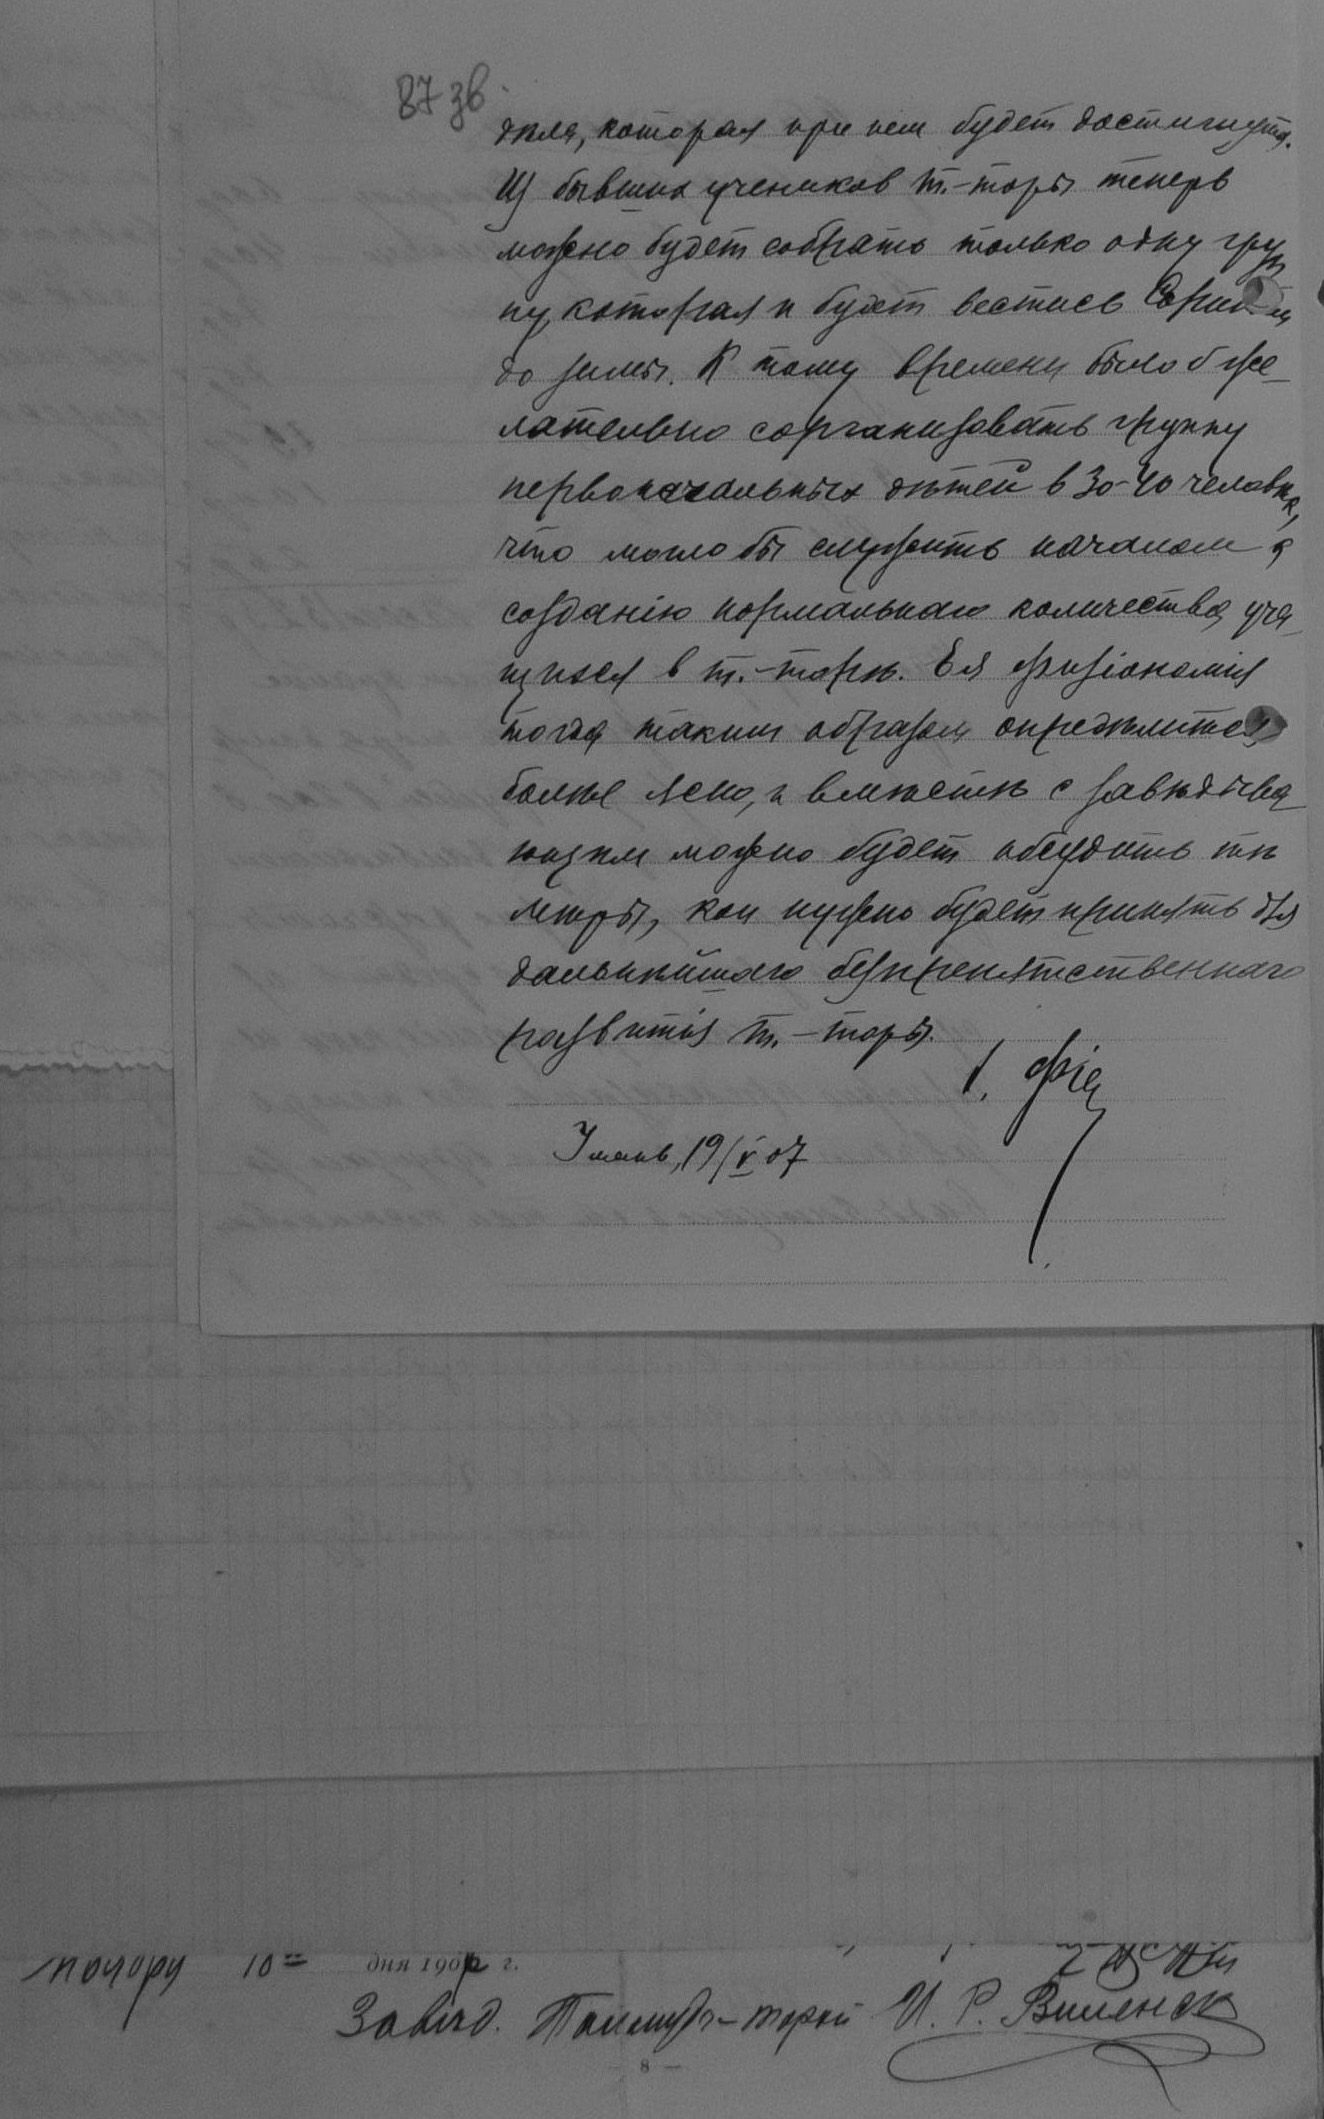 87 зв.
дѣля, которая при нем будет достигнута.
Из бывших учеников т.-торы теперь
можно будет собрать только одну груп
пу, которая и будет вестись
до зимы. К тому времени было б же-
лательно сорганизовать группу
первоначальных дѣтей в 30-40 человѣк,
что могло бы служить началом к
созданію нормальнаго количества уча-
щихся в т.-торѣ. Ея физіономія
тогда таким образом опредѣлится
болѣе ясно, и вмѣстѣ с завѣдыва-
ющим можно будет обсудить тѣ
мѣры, кои нужно будет принять для
дальнѣйшаго безпрепятственнаго
развитія т.-торы.
Умань, 19/V 07
10 дня 190 г.
Завѣд. Талмудъ-торой И. Р. Виленск
8 —